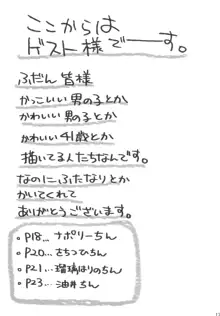 ここからは
ゲスト様でーーす。
ふだん 皆様
かっこいい 男の子とか
かわいい 男の子とか
かわいい 41歳とか
描いてる人たちなんです。
なのに ふたなりとか
かいてくれて
ありがとうございます。
・P18… ナポリーちん
・P20… さちつひちん
・P21… 瑠璃はりのちん
・P23… 油井ちん